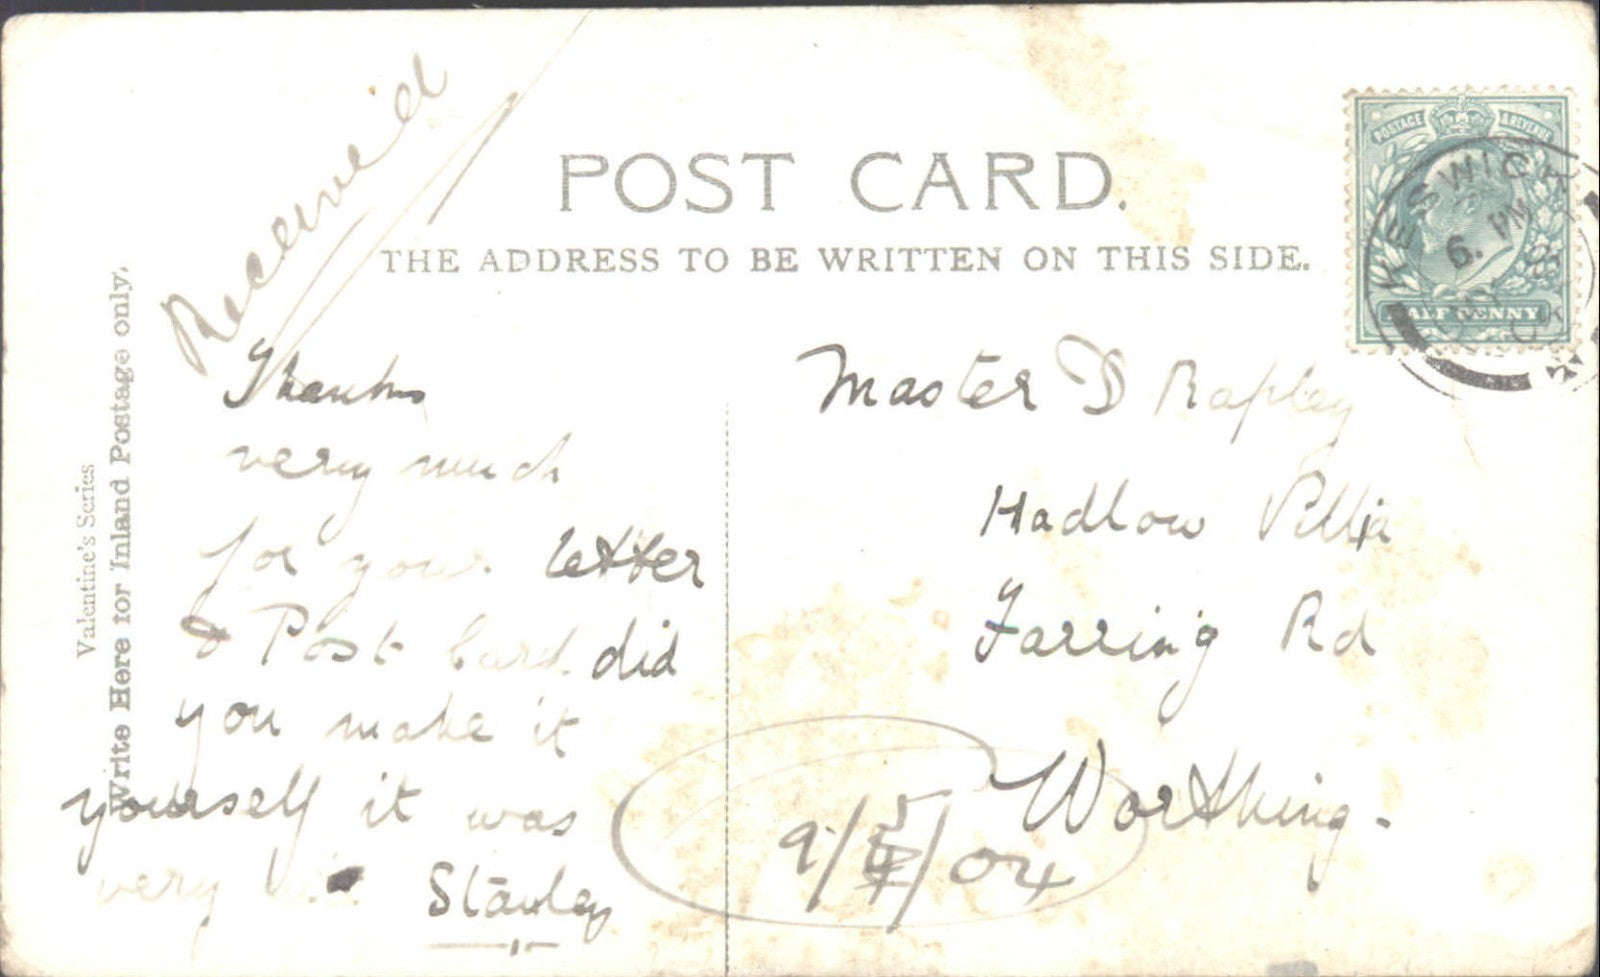 POST CARD.
THE ADDRESS TO BE WRITTEN ON THIS SIDE.
Valentine's Series
Write Here for Inland Postage only.
POSTAGE & REVENUE
HALF PENNY
KESWICK
6. PM
04
Receiv'd
Thanks
very much
for your letter
& Post Card did
you make it
yourself it was
very
Stanley
Master D Rapley
Hadlow Villa
Farring Rd
Worthing.
9/5/04